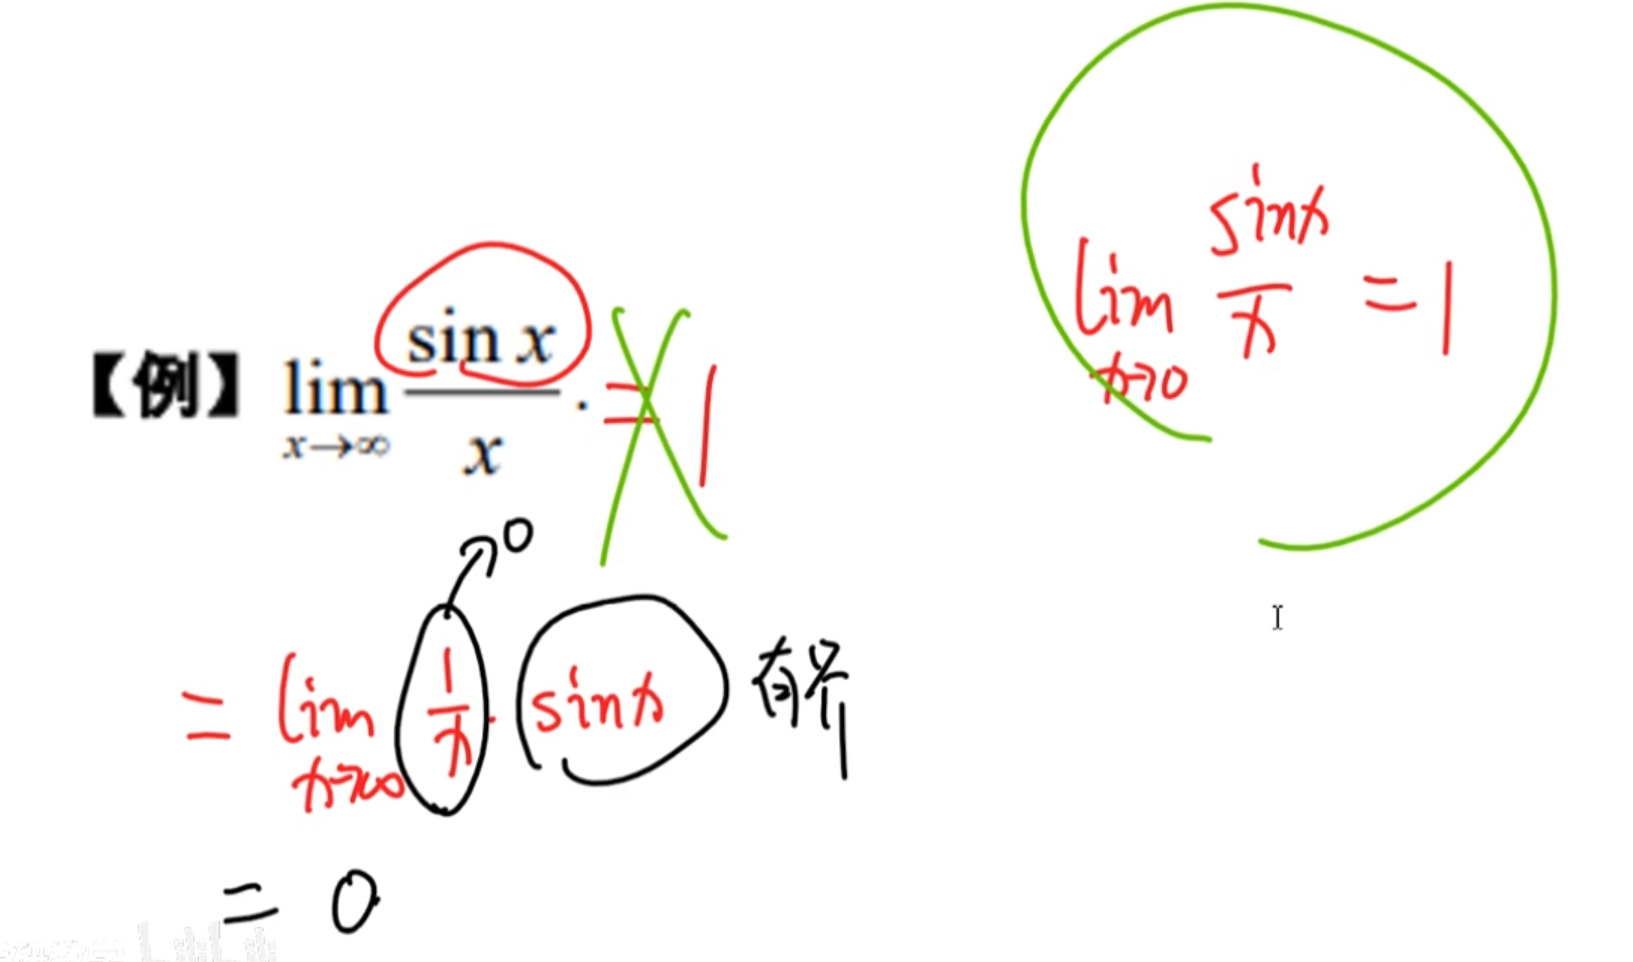 【例】 lim x→∞ sin x / x . = 1
lim x→0 sinx / x = 1
→ 0
= lim x→∞ 1/x · sinx 有界
= 0